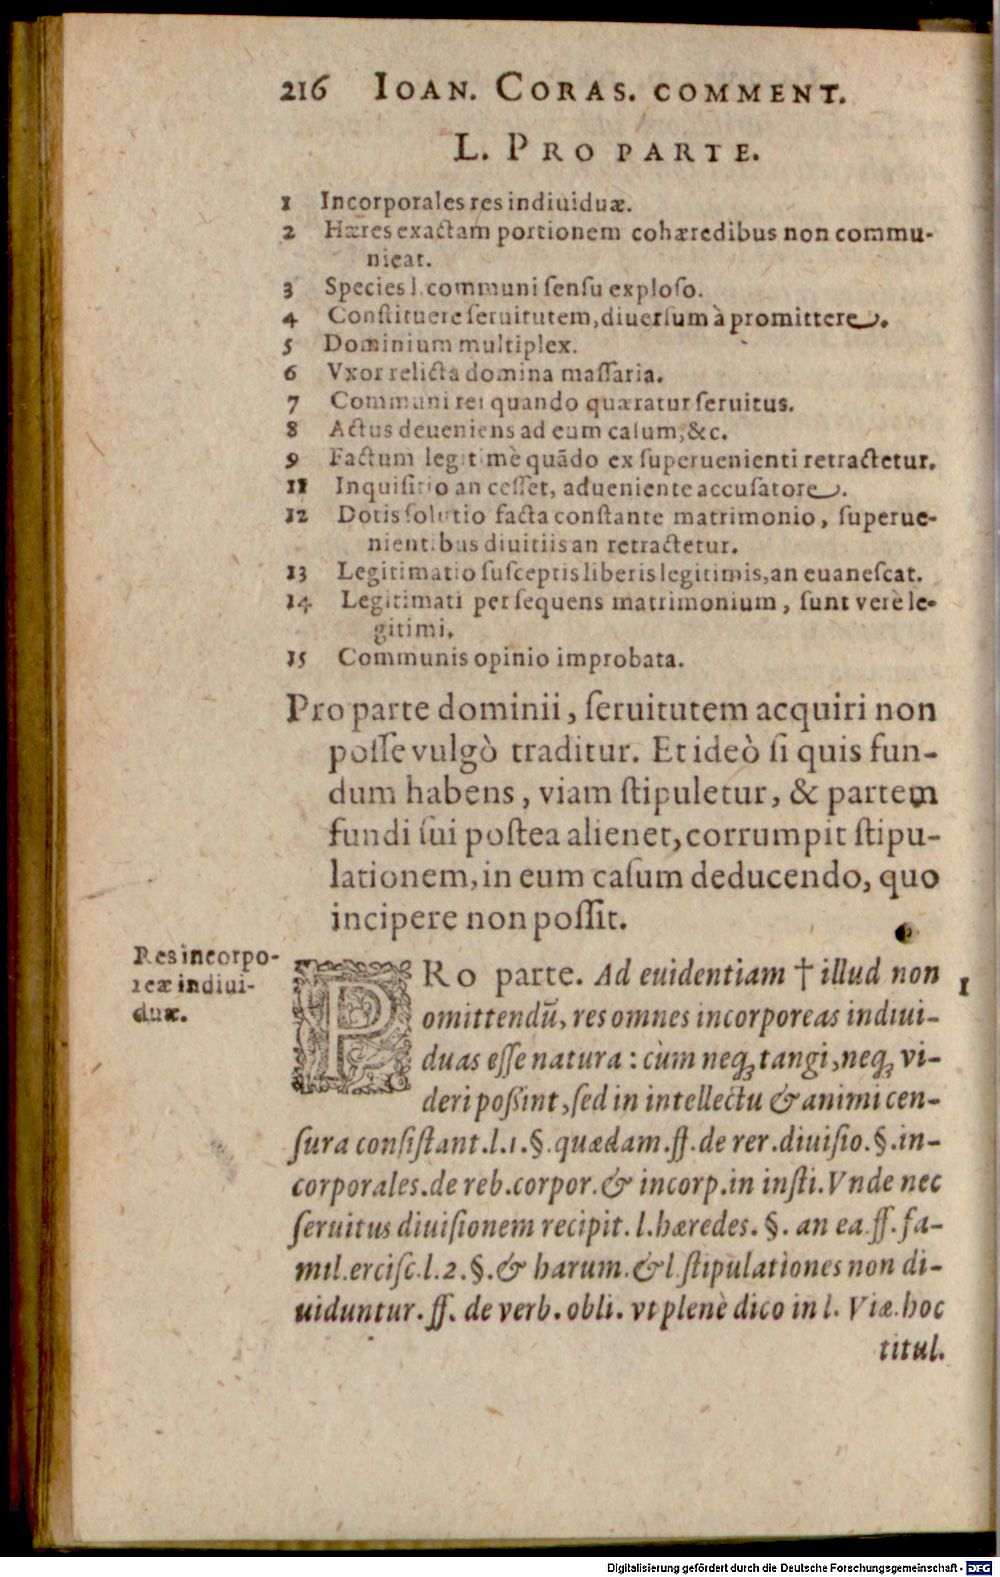 216 IOAN. CORAS. COMMENT.
L. PRO PARTE.
1 Incorporales res indiuiduæ.
2 Hæres exactam portionem cohæredibus non commu-
nicat.
3 Species l. communi ſenſu exploſo.
4 Conſtituere ſeruitutem, diuerſum à promittere.
5 Dominium multiplex.
6 Vxor relicta domina maſſaria.
7 Communi rei quando quæratur ſeruitus.
8 Actus deueniens ad eum caſum, &c.
9 Factum legitimè quãdo ex ſuperuenienti retractetur.
11 Inquiſitio an ceſſet, adueniente accuſatore.
12 Dotis ſolutio facta conſtante matrimonio, ſuperue-
nientibus diuitiis an retractetur.
13 Legitimatio ſuſceptis liberis legitimis, an euaneſcat.
14 Legitimati per ſequens matrimonium, ſunt verè le-
gitimi.
15 Communis opinio improbata.
Pro parte dominii, ſeruitutem acquiri non
poſſe vulgò traditur. Et ideò ſi quis fun-
dum habens, viam ſtipuletur, & partem
fundi ſui poſtea alienet, corrumpit ſtipu-
lationem, in eum caſum deducendo, quo
incipere non poſſit.
Res incorpo-
reæ indiui-
duæ.
PRo parte. Ad euidentiam † illud non 1
omittendũ, res omnes incorporeas indiui-
duas eſſe natura: cùm neqꝫ tangi, neqꝫ vi-
deri poßint, ſed in intellectu & animi cen-
ſura conſiſtant. l. 1. §. quædam. ff. de rer. diuiſio. §. in-
corporales. de reb. corpor. & incorp. in inſti. Vnde nec
ſeruitus diuiſionem recipit. l. hæredes. §. an ea. ff. fa-
mil. erciſc. l. 2. §. & harum. & l. ſtipulationes non di-
uiduntur. ff. de verb. obli. vt plenè dico in l. Viæ. hoc
titul.
Digitalisierung gefördert durch die Deutsche Forschungsgemeinschaft - DFG